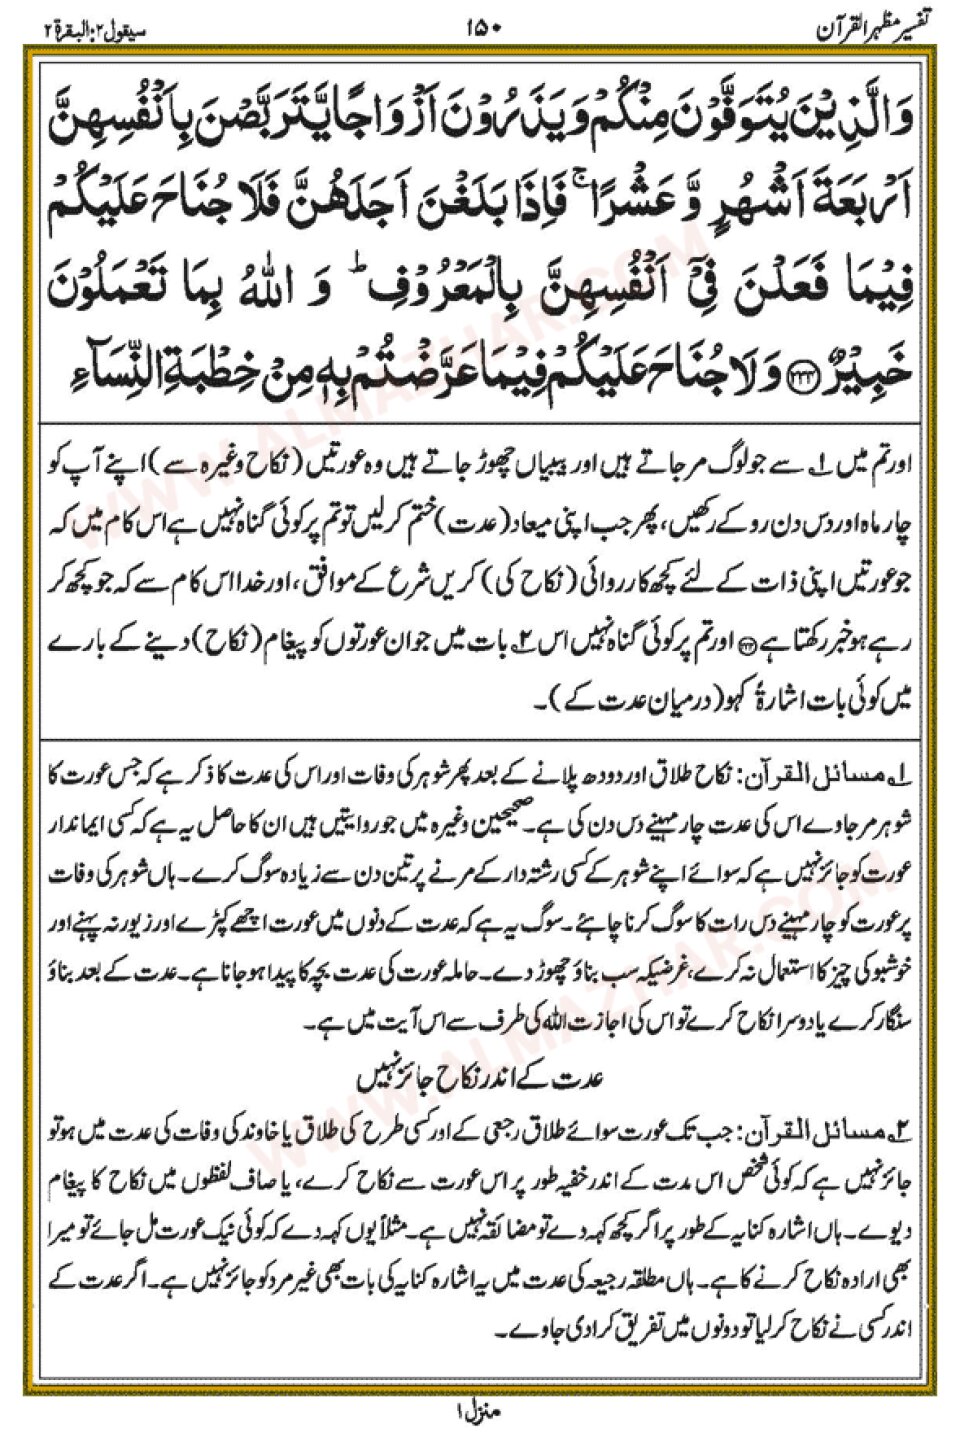 تفسیر مظہر القرآن ۱۵۰ سیقول ۲: البقرۃ ۲
وَالَّذِيْنَ يُتَوَفَّوْنَ مِنْكُمْ وَيَذَرُوْنَ اَزْوَاجًا يَّتَرَبَّصْنَ بِاَنْفُسِهِنَّ
اَرْبَعَةَ اَشْهُرٍ وَّعَشْرًا ۚ فَاِذَا بَلَغْنَ اَجَلَهُنَّ فَلَا جُنَاحَ عَلَيْكُمْ
فِيْمَا فَعَلْنَ فِيْٓ اَنْفُسِهِنَّ بِالْمَعْرُوْفِ ؕ وَ اللّٰهُ بِمَا تَعْمَلُوْنَ
خَبِيْرٌ ﴿۲۳۴﴾ وَلَا جُنَاحَ عَلَيْكُمْ فِيْمَا عَرَّضْتُمْ بِهٖ مِنْ خِطْبَةِ النِّسَآءِ
اور تم میں ۱؎ سے جو لوگ مر جاتے ہیں اور بیبیاں چھوڑ جاتے ہیں وہ عورتیں (نکاح وغیرہ سے) اپنے آپ کو
چار ماہ اور دس دن روکے رکھیں، پھر جب اپنی میعاد (عدت) ختم کرلیں تو تم پر کوئی گناہ نہیں ہے اس کام میں کہ
جو عورتیں اپنی ذات کے لئے کچھ کارروائی (نکاح کی) کریں شرع کے موافق، اور خدا اس کام سے کہ جو کچھ کر
رہے ہو خبر رکھتا ہے اور تم پر کوئی گناہ نہیں اس ۲؎ بات میں جو ان عورتوں کو پیغام (نکاح) دینے کے بارے
میں کوئی بات اشارۃً کہو (درمیان عدت کے)۔
۱؎ مسائل القرآن: نکاح طلاق اور دودھ پلانے کے بعد پھر شوہر کی وفات اور اس کی عدت کا ذکر ہے کہ جس عورت کا
شوہر مر جاوے اس کی عدت چار مہینے دس دن کی ہے۔ صحیحین وغیرہ میں جو روایتیں ہیں ان کا حاصل یہ ہے کہ کسی ایماندار
عورت کو جائز نہیں ہے کہ سوائے اپنے شوہر کے کسی رشتہ دار کے مرنے پر تین دن سے زیادہ سوگ کرے۔ ہاں شوہر کی وفات
پر عورت کو چار مہینے دس رات کا سوگ کرنا چاہئے۔ سوگ یہ ہے کہ عدت کے دنوں میں عورت اچھے کپڑے اور زیور نہ پہنے اور
خوشبو کی چیز کا استعمال نہ کرے، غرضیکہ سب بناؤ چھوڑ دے۔ حاملہ عورت کی عدت بچہ کا پیدا ہوجانا ہے۔ عدت کے بعد بناؤ
سنگار کرے یا دوسرا نکاح کرے تو اس کی اجازت اللہ کی طرف سے اس آیت میں ہے۔
عدت کے اندر نکاح جائز نہیں
۲؎ مسائل القرآن: جب تک عورت سوائے طلاق رجعی کے اور کسی طرح کی طلاق یا خاوند کی وفات کی عدت میں ہو تو
جائز نہیں ہے کہ کوئی شخص اس مدت کے اندر خفیہ طور پر اس عورت سے نکاح کرے، یا صاف لفظوں میں نکاح کا پیغام
دیوے۔ ہاں اشارہ کنایہ کے طور پر اگر کچھ کہہ دے تو مضائقہ نہیں ہے۔ مثلاً یوں کہہ دے کہ کوئی نیک عورت مل جائے تو میرا
بھی ارادہ نکاح کرنے کا ہے۔ ہاں مطلقہ رجعیہ کی عدت میں یہ اشارہ کنایہ کی بات بھی غیر مرد کو جائز نہیں ہے۔ اگر عدت کے
اندر کسی نے نکاح کرلیا تو دونوں میں تفریق کرادی جاوے۔
منزل ۱
WWW.ALMAZHAR.COM
WWW.ALMAZHAR.COM